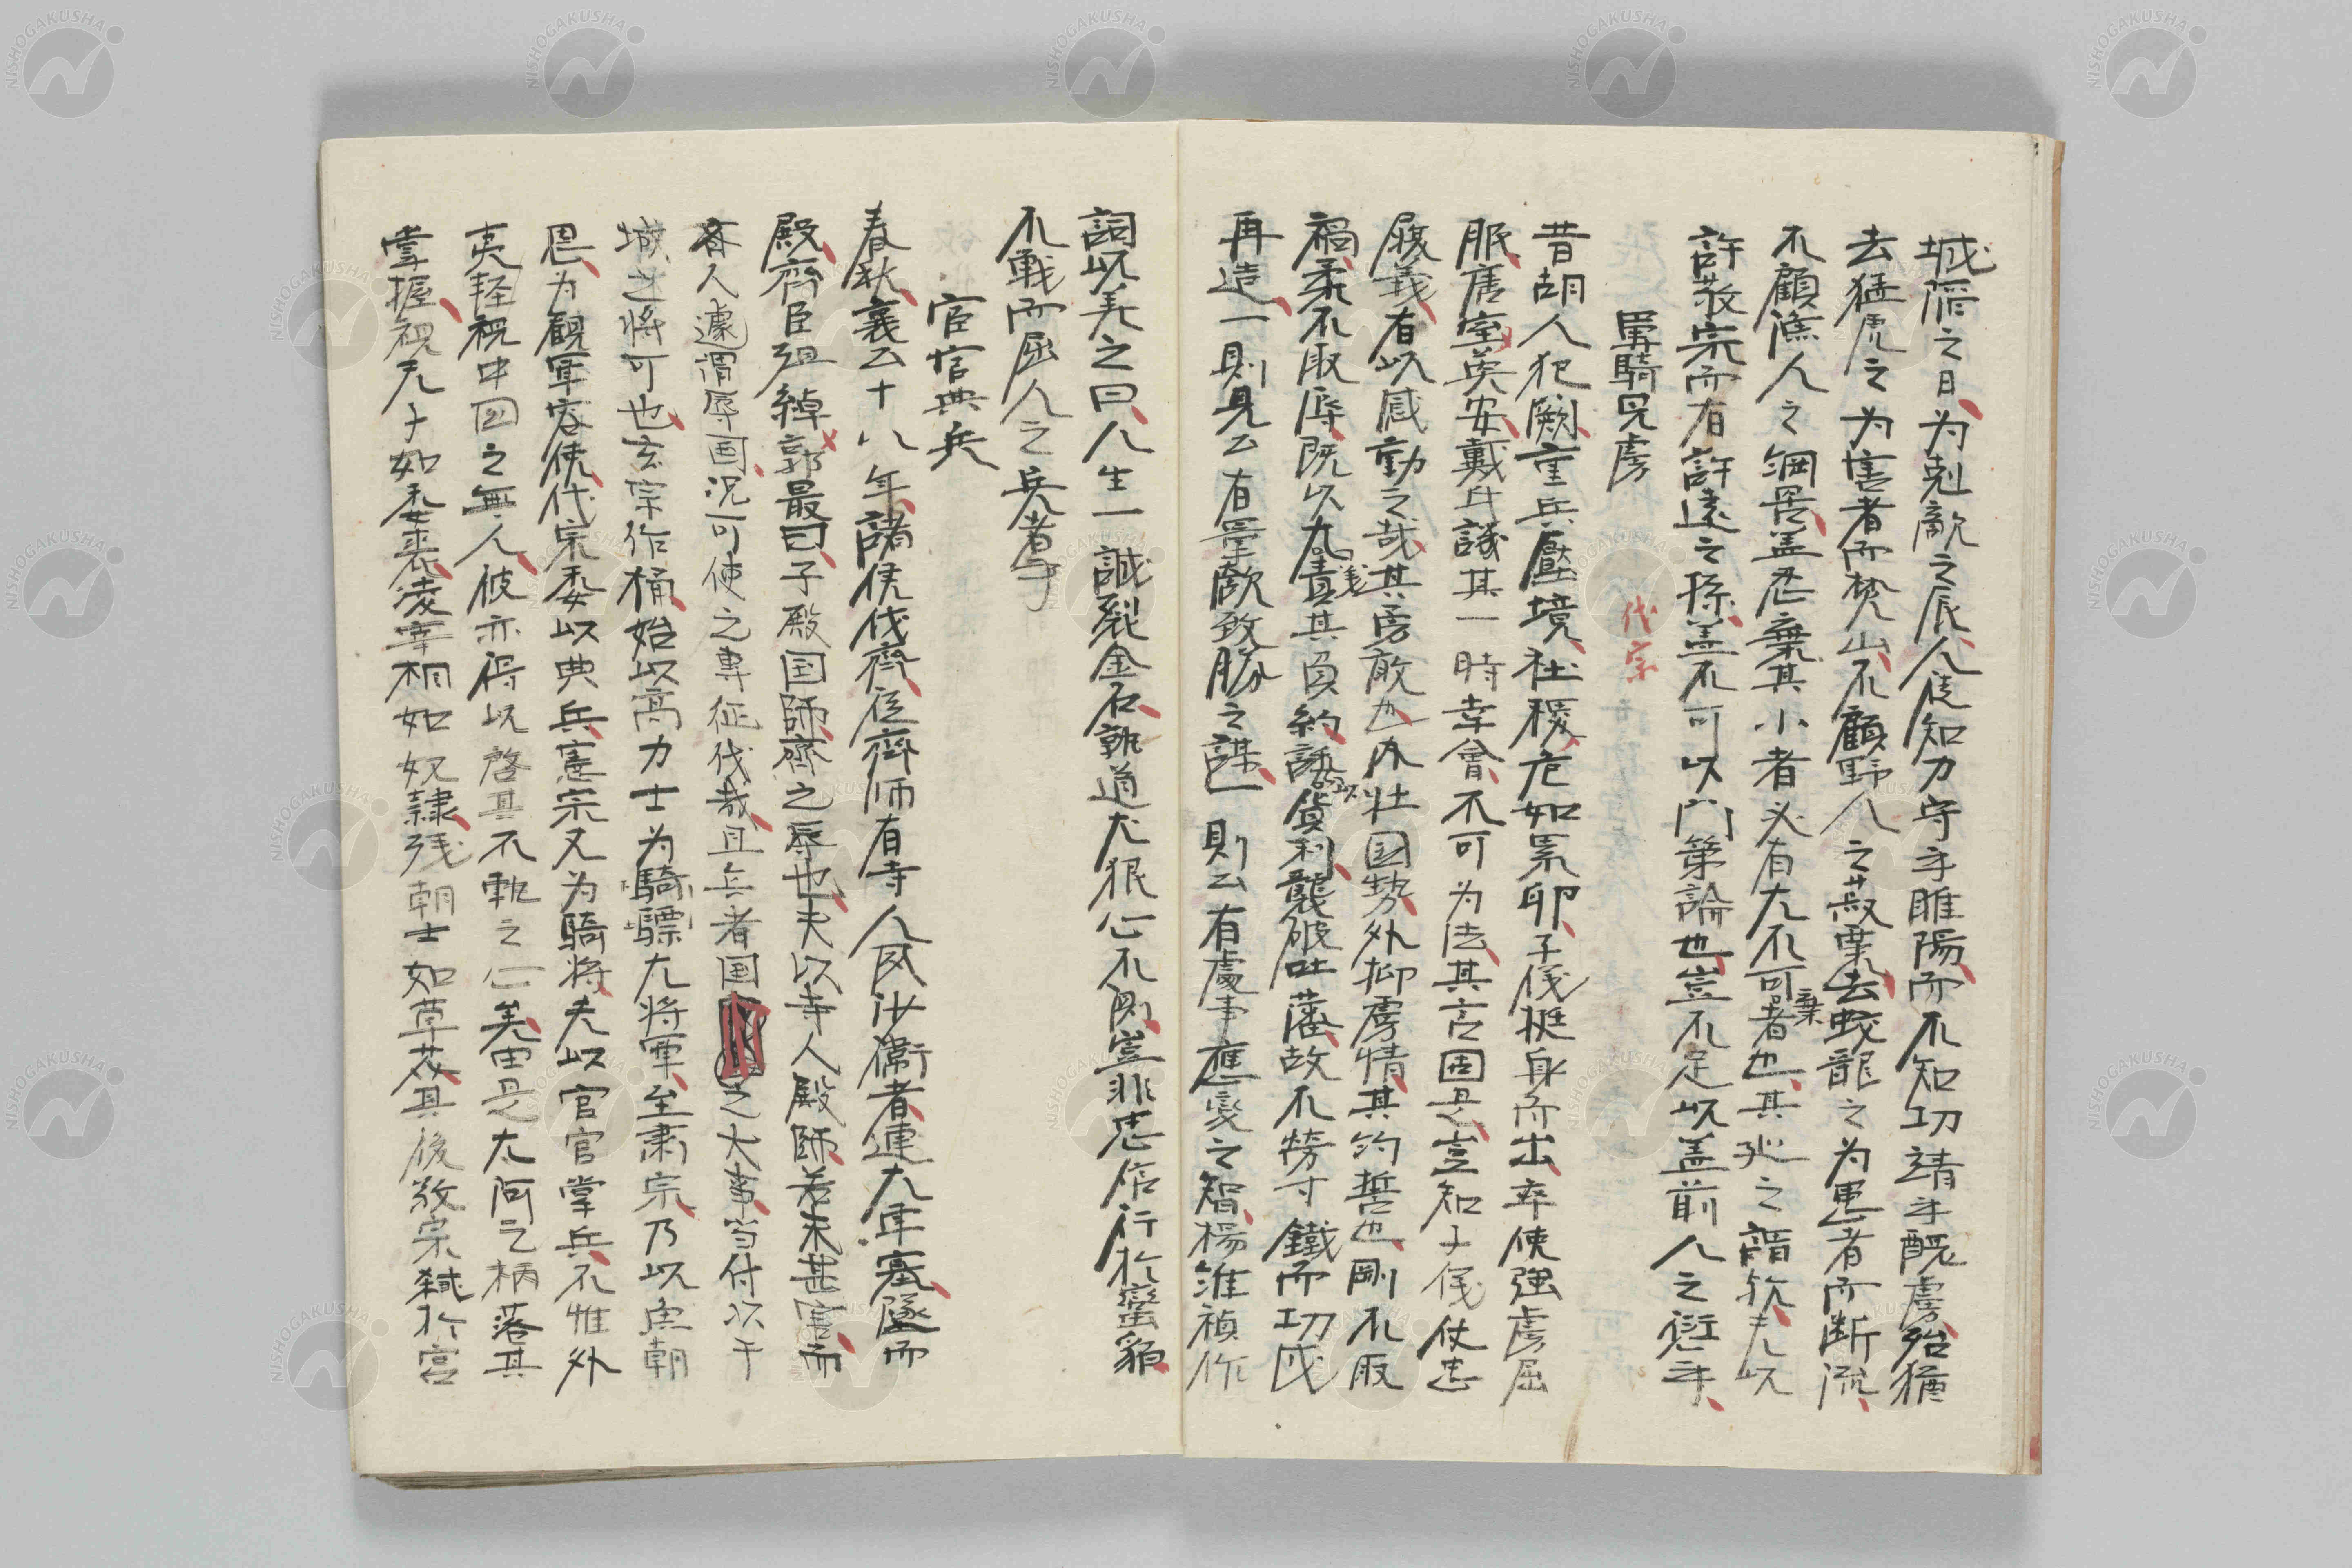 城陷之日、为剋敵之辰、人徒知力守乎睢陽、而不知功靖乎醜虜、殆猶
去猛虎之为害者而焚山、不顧野人之菽葉、去蛟龍之为患者而断流、
不顧漁人之網罟、盖悉棄其小者必有大不可棄者也、其処之詣欤、夫以
許敬宗而有許遠之孫、盖不可以門第論也、豈不足以盖前人之愆乎、
単騎見虜
代宗
昔胡人犯闕、重兵壓境、社稷危如累卵、子儀挺身而出、卒使強虜屈
服、唐室英安、戴斗議其一時幸會、不可为法、其言固是、豈知子儀仗忠
履義、有以感動之哉、其勇敢也、内壮国勢、外抑虜情、其約誓也、剛不取
禍、柔不取辱、既以九義責其負約、誘以貨利、襲破吐藩、故不勞寸鐵而功成
再造、一則見公有單敵致勝之謀、一則公有處事應変之智、楊維禎作
詞以美之曰、人生一誠裂金石、孰道犬狠心不測、豈非忠信行於蠻貊、
不戰而屈人之兵者乎
宦官典兵
春秋、襄公十八年、諸侯伐齊、從齊師有寺人夙沙衛者、連大車塞隧而
殿、齊臣殖綽郭最曰、子殿国師、齊之辱也、夫以寺人殿師、若未甚害、而
齊人遽謂辱国、况可使之專征伐哉、且兵者国之大事、当付以干
城之将可也、玄宗作桶、始以高力士为騎驃大将軍、至肅宗、乃以魚朝
恩、为觀軍容使、代宗委以典兵、憲宗又为騎将、夫以官官掌兵、不惟外
夷軽視中国之無人、彼亦得以啓其不軌之心矣、由是太阿之柄落其
掌握、視天子如委裘、凌宰相如奴隷、残朝士如草芥、其後敬宗弑於宮